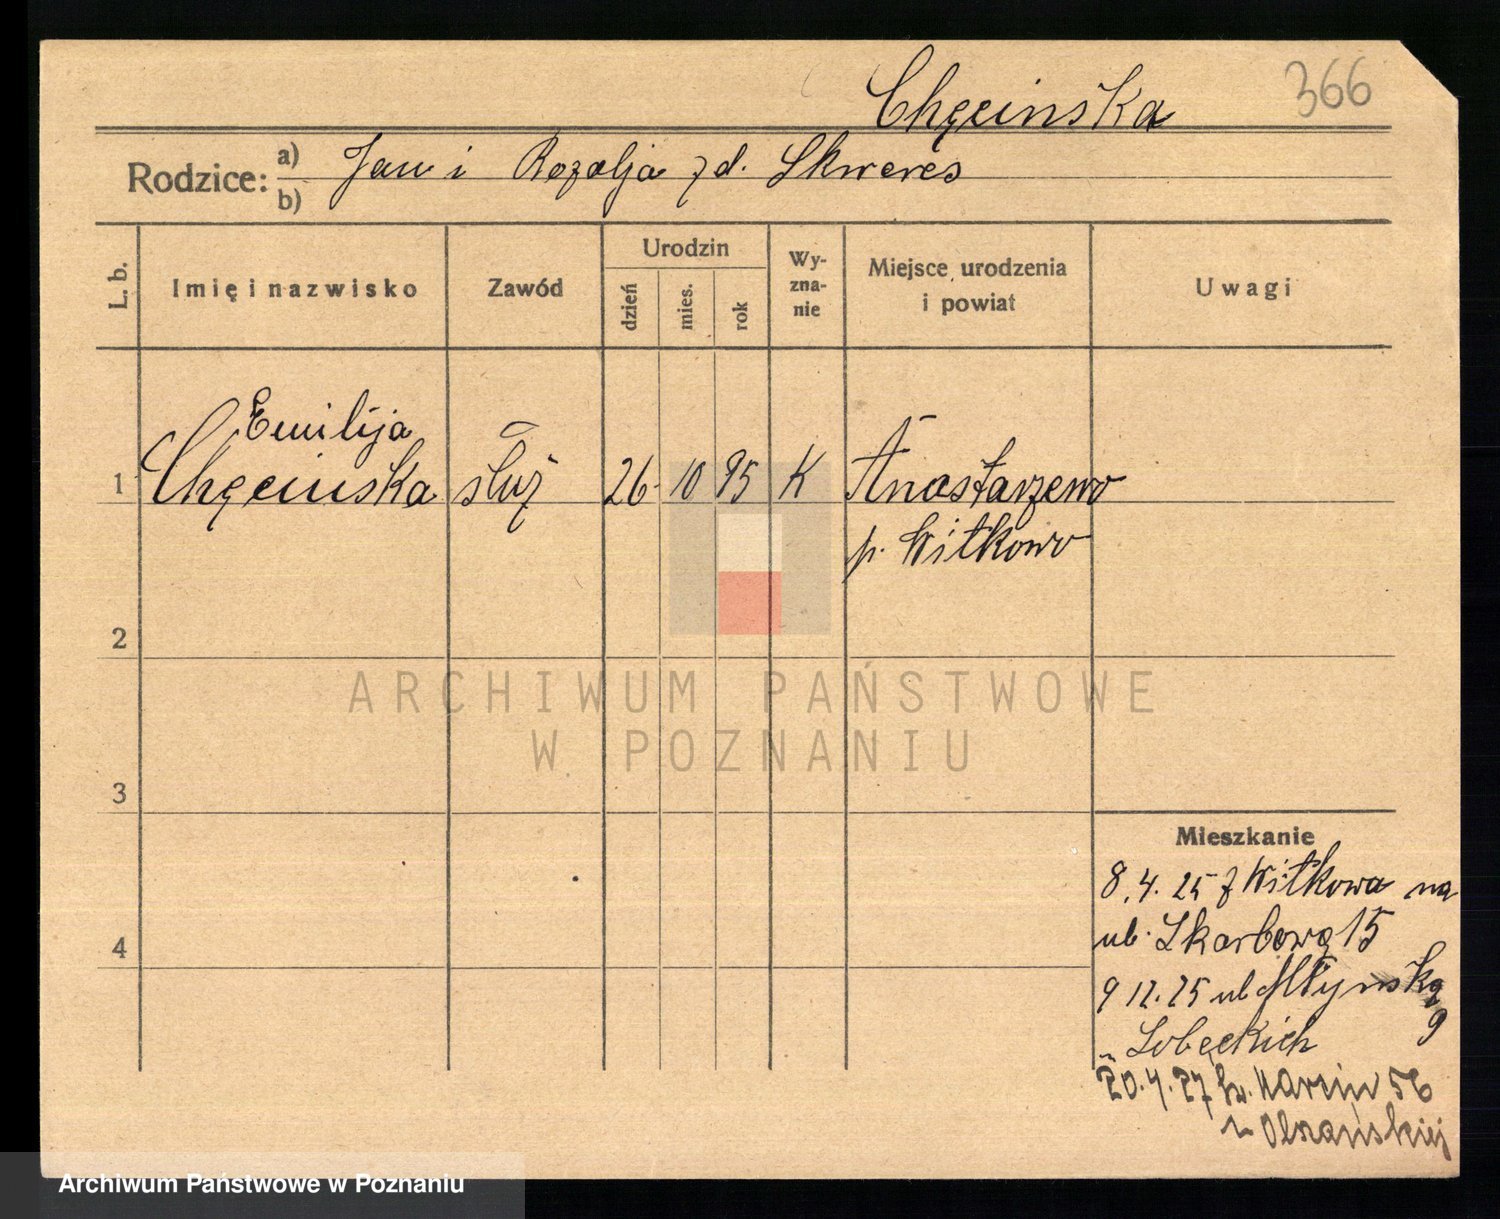 Chęcinska 366
Rodzice: a) Jan i Rozalja zd. Skweres
b)
L. b. Imię i nazwisko Zawód Urodzin dzień mies. rok Wy-zna-nie Miejsce urodzenia i powiat Uwagi
Emilija
1 Chęcinska służ 26 10 95 K Anastazewo
p. Witkowo
2
ARCHIWUM PAŃSTWOWE
W POZNANIU
3
Mieszkanie
8.4. 25 z Witkowa na
ul. Skarbową 15
4
9 12.25 ul Młynską
9
" Sobeckich
20.4.27 św. Marcin 56
Olszańskiej
Archiwum Państwowe w Poznaniu